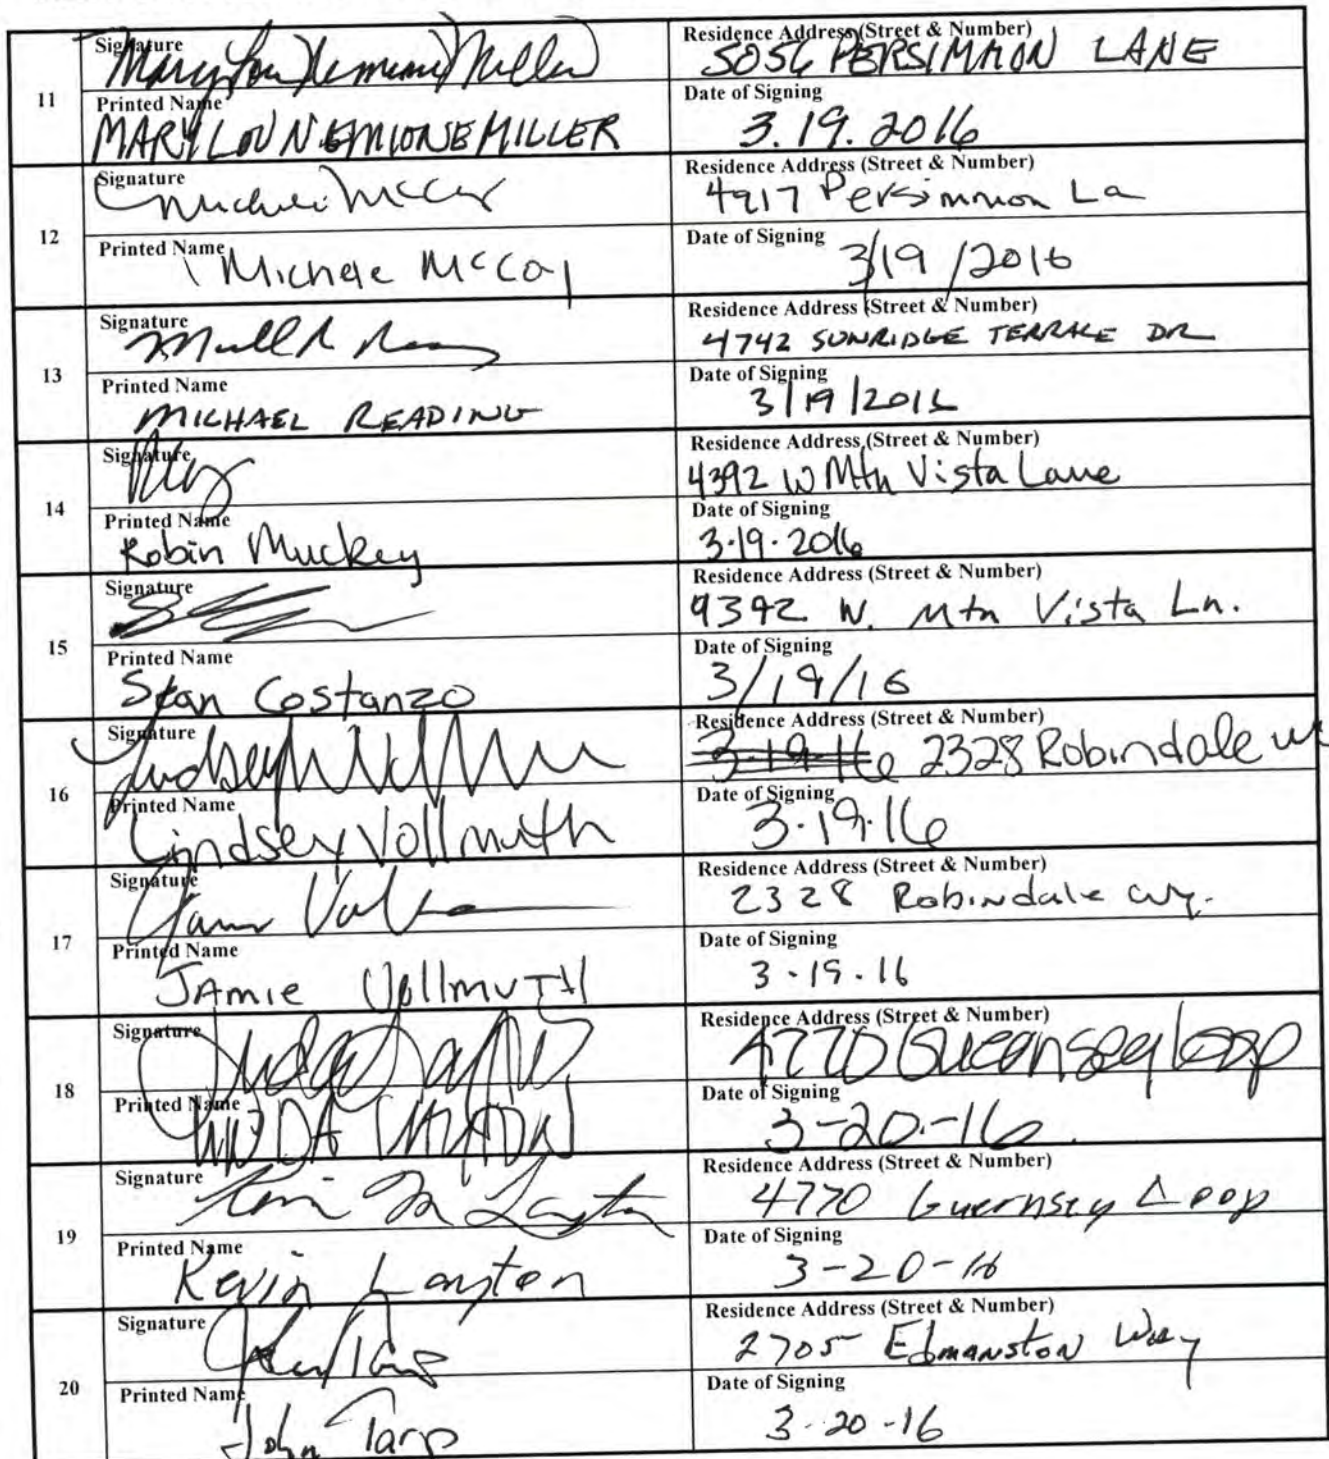 Signature Mary Lou Nemione Miller
Residence Address (Street & Number)
5056 PERSIMMON LANE
11
Printed Name
MARY LOU NEMIONE MILLER
Date of Signing
3.19.2016
Signature
Michele McCoy
Residence Address (Street & Number)
4917 Persimmon La
12
Printed Name
Michele McCoy
Date of Signing
3/19/2016
Signature
Residence Address (Street & Number)
4742 SUNRIDGE TERRACE DR
13
Printed Name
MICHAEL READING
Date of Signing
3/19/2016
Signature
Residence Address (Street & Number)
4392 W Mtn Vista Lane
14
Printed Name
Robin Muckey
Date of Signing
3.19.2016
Signature
Residence Address (Street & Number)
9392 W. Mtn Vista Ln.
15
Printed Name
Stan Costanzo
Date of Signing
3/19/16
Signature
Lindsey
Residence Address (Street & Number)
3-19-16 2328 Robindale
16
Printed Name
Lindsey Vollmuth
Date of Signing
3.19.16
Signature
Residence Address (Street & Number)
2328 Robindale wy.
17
Printed Name
JAmie VollmuTH
Date of Signing
3-19-16
Signature
Residence Address (Street & Number)
4770 Guernsey Loop
18
Printed Name
Date of Signing
3-20-16
Signature
Kevin M Layton
Residence Address (Street & Number)
4770 Guernsey Loop
19
Printed Name
Kevin Layton
Date of Signing
3-20-16
Signature
Residence Address (Street & Number)
2705 Edmanston Way
20
Printed Name
John Tarp
Date of Signing
3-20-16